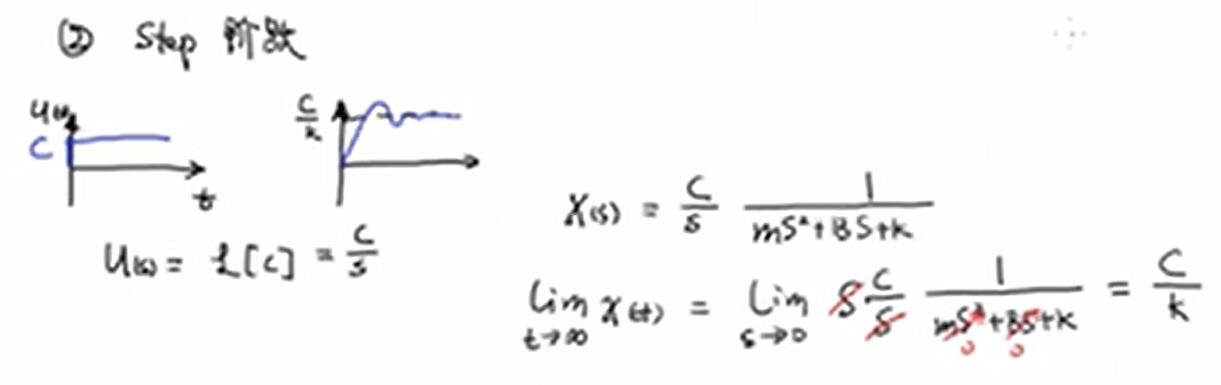 ② Step 阶跃
u(t)
C
t
C/k
U(s) = L[C] = C/s
X(s) = C/s 1/(mS²+BS+k)
lim t→∞ x(t) = lim s→0 S C/S 1/(mS²+BS+k) = C/k
0 0